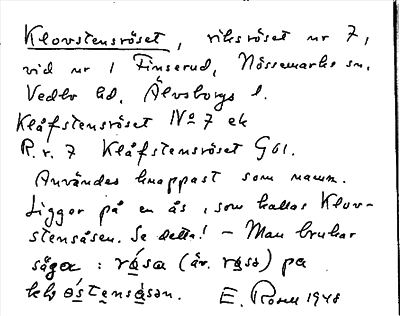 Klovstensröset, riksröset nr 7,
vid nr 1 Finserud, Nössemarks sn.
Vedbo hd, Älvsborgs l.
Klåfstensröset No 7 ek
R.r. 7 Klåfstensröset G61.
Användes knappast som namn.
Ligger på en ås, som kallas Klov-
stensåsen. Se detta! – Man brukar
säga: rósa (äv. rɷsə) på
E. Rosell 1948